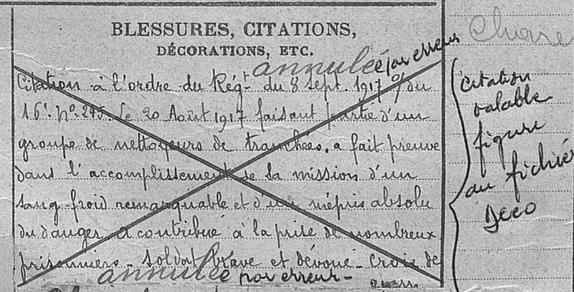 BLESSURES, CITATIONS,
DÉCORATIONS, ETC.
annulée par erreur
Citation à l'ordre du Régt du 8 Sept. 1917 du
16e. No. 245. Le 20 Août 1917 faisant partie d'un
groupe de nettoyeurs de tranchées, a fait preuve
dans l'accomplissement de sa mission d'un
sang froid remarquable et d'un mépris absolu
du danger. A contribué à la prise de nombreux
prisonniers. Soldat brave et dévoué. Croix de
guerr.
annulée par erreur
citation
valable
figure
au fichier